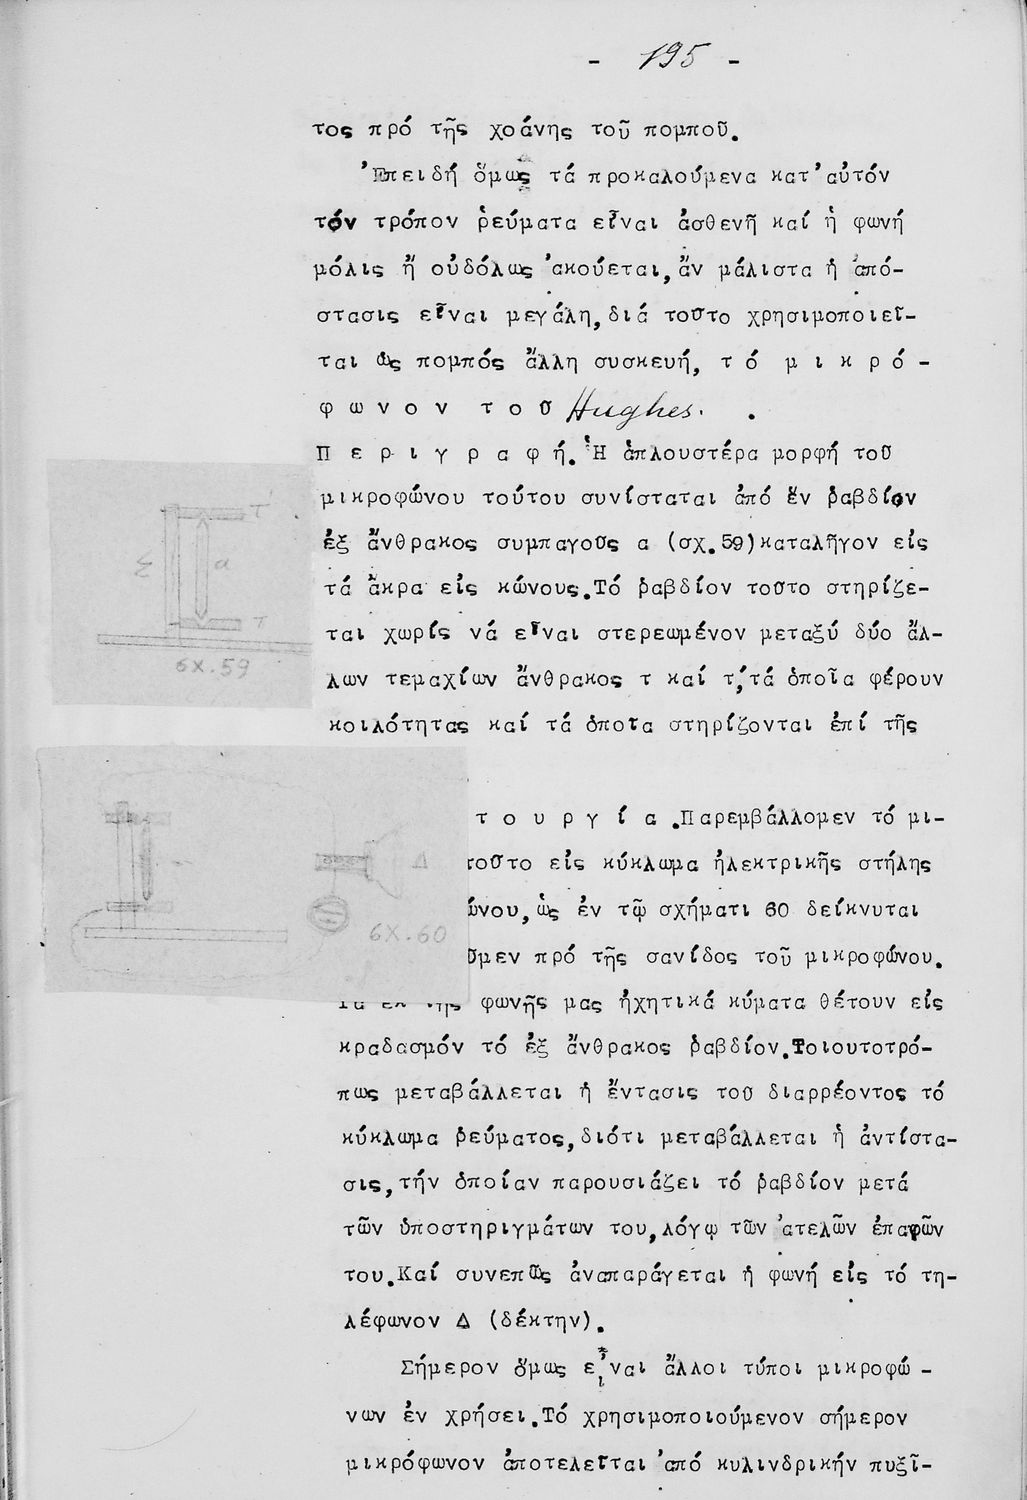 - 195 -
τος πρό τῆς χοάνης τοῦ πομποῦ.
Ἐπειδή ὅμως τά προκαλούμενα κατ'αὐτόν
τόν τρόπον ῥεύματα εἶναι ἀσθενῆ καί ἡ φωνή
μόλις ἤ οὐδόλως ἀκούεται, ἄν μάλιστα ἡ ἀπό-
στασις εἶναι μεγάλη, διά τοῦτο χρησιμοποιεῖ-
ται ὡς πομπός ἄλλη συσκευή, τ ό μ ι κ ρ ό -
φ ω ν ο ν τ ο ῦ Hughes.
Π ε ρ ι γ ρ α φ ή. Ἡ ἁπλουστέρα μορφή τοῦ
μικροφώνου τούτου συνίσταται ἀπό ἕν ῥαβδίον
ἐξ ἄνθρακος συμπαγοῦς α (σχ. 59) καταλῆγον εἰς
τά ἄκρα εἰς κώνους. Τό ῥαβδίον τοῦτο στηρίζε-
ται χωρίς νά εἶναι στερεωμένον μεταξύ δύο ἄλ-
λων τεμαχίων ἄνθρακος τ καί τ', τά ὁποῖα φέρουν
κοιλότητας καί τά ὁποῖα στηρίζονται ἐπί τῆς
τ ο υ ρ γ ί α. Παρεμβάλλομεν τό μι-
τοῦτο εἰς κύκλωμα ἠλεκτρικῆς στήλης
ώνου, ὡς ἐν τῷ σχήματι 60 δείκνυται
οῦμεν πρό τῆς σανίδος τοῦ μικροφώνου.
Τά ἐκ τῆς φωνῆς μας ἠχητικά κύματα θέτουν εἰς
κραδασμόν τό ἐξ ἄνθρακος ῥαβδίον. Τοιουτοτρό-
πως μεταβάλλεται ἡ ἔντασις τοῦ διαρρέοντος τό
κύκλωμα ῥεύματος, διότι μεταβάλλεται ἡ ἀντίστα-
σις, τήν ὁποίαν παρουσιάζει τό ῥαβδίον μετά
τῶν ὑποστηριγμάτων του, λόγῳ τῶν ἀτελῶν ἐπαφῶν
του. Καί συνεπῶς ἀναπαράγεται ἡ φωνή εἰς τό τη-
λέφωνον Δ (δέκτην).
Σήμερον ὅμως εἶναι ἄλλοι τύποι μικροφώ -
νων ἐν χρήσει. Τό χρησιμοποιούμενον σήμερον
μικρόφωνον ἀποτελεῖται ἀπό κυλινδρικήν πυξῖ-
τ'
Σ α
τ
σχ. 59
Δ
σχ. 60